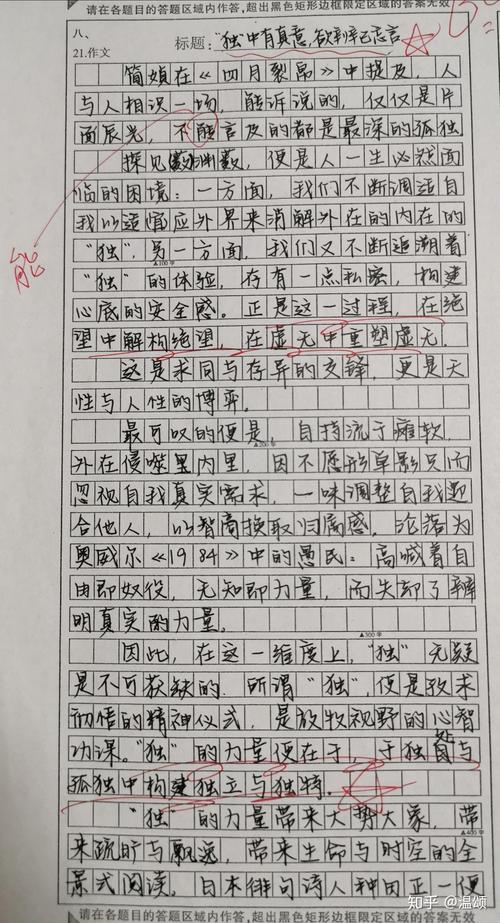 请在各题目的答题区域内作答，超出黑色矩形边框限定区域的答案无效
八、
21.作文
标题："独"中有真意，欲辨已忘言
简媜在《四月裂帛》中提及，人
与人相识一场，能诉说的，仅仅是片
面辰光，不能言及的都是最深的孤独
能
探见数渊数，便是人一生必然面
临的困境：一方面，我们不断调适自
我以适应外界来消解外在的内在的
"独"，另一方面，我们又不断追溯着
▲100字
"独"的体验，存有一点私密，构建
心底的安全感。正是这一过程，在绝
望中解构绝望，在虚无中重塑虚无。
这是求同与存异的交锋，更是天
性与人性的博弈。
▲200字
最可叹的便是，自持流于瘫软，
外在侵噬里内里，因不愿形单影只而
忽视自我真实需求，一味调整自我迎
合他人，以智商换取归属感，沦落为
奥威尔《1984》中的愚民：高喊着自
由即奴役，无知即力量，而失却了辨
明真实的力量。
▲300字
因此，在这一维度上，"独"无疑
是不可获缺的.所谓"独"，便是孜求
彻悟的精神仪式，是放牧视野的心智
功课。"独"的力量便在于，于独处与
孤独中构建独立与独特。
"独"的力量带来大势大象，带
▲400字
来疏旷与飘逸，带来生命与时空的全
景式阅读，日本俳句诗人种田正一便
请在各题目的答题区域内作答，超出黑色矩形边框限定区域的答案无效
知乎 @温颂